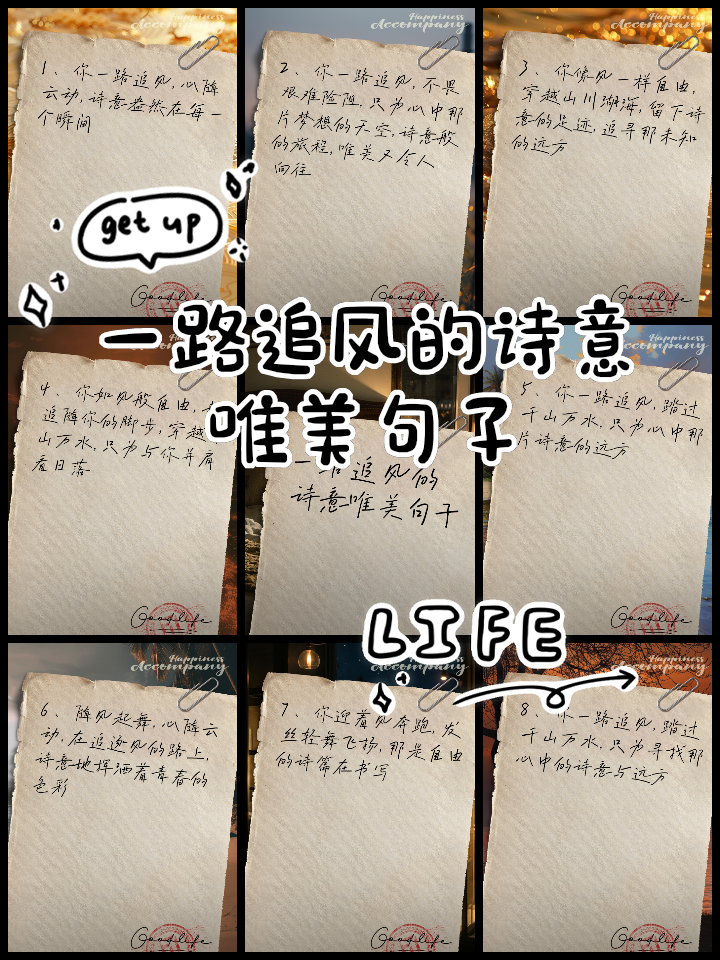 Happiness
Accompany
1、你一路追风,心随
云动,诗意盎然在每一
个瞬间
Good life
Happiness
Accompany
2、你一路追风,不畏
艰难险阻,只为心中那
片梦想的天空,诗意般
的旅程,唯美又令人
向往
Good life
Happiness
Accompany
3、你像风一样自由,
穿越山川湖海,留下诗
意的足迹,追寻那未知
的远方
Good life
get up
一路追风的诗意
唯美句子
4、你如风般自由,
追随你的脚步,穿越
山万水,只为与你并肩
看日落
Good life
一路追风的
诗意唯美句子
Happiness
Accompany
5、你一路追风,踏过
千山万水,只为心中那
片诗意的远方
Good life
LIFE
Happiness
Accompany
6、随风起舞,心随云
动,在追逐风的路上,
诗意地挥洒着青春的
色彩
Good life
Happiness
Accompany
7、你迎着风奔跑,发
丝轻舞飞扬,那是自由
的诗篇在书写
Good life
Happiness
Accompany
8、你一路追风,踏过
千山万水,只为寻找那
心中的诗意与远方
Good life